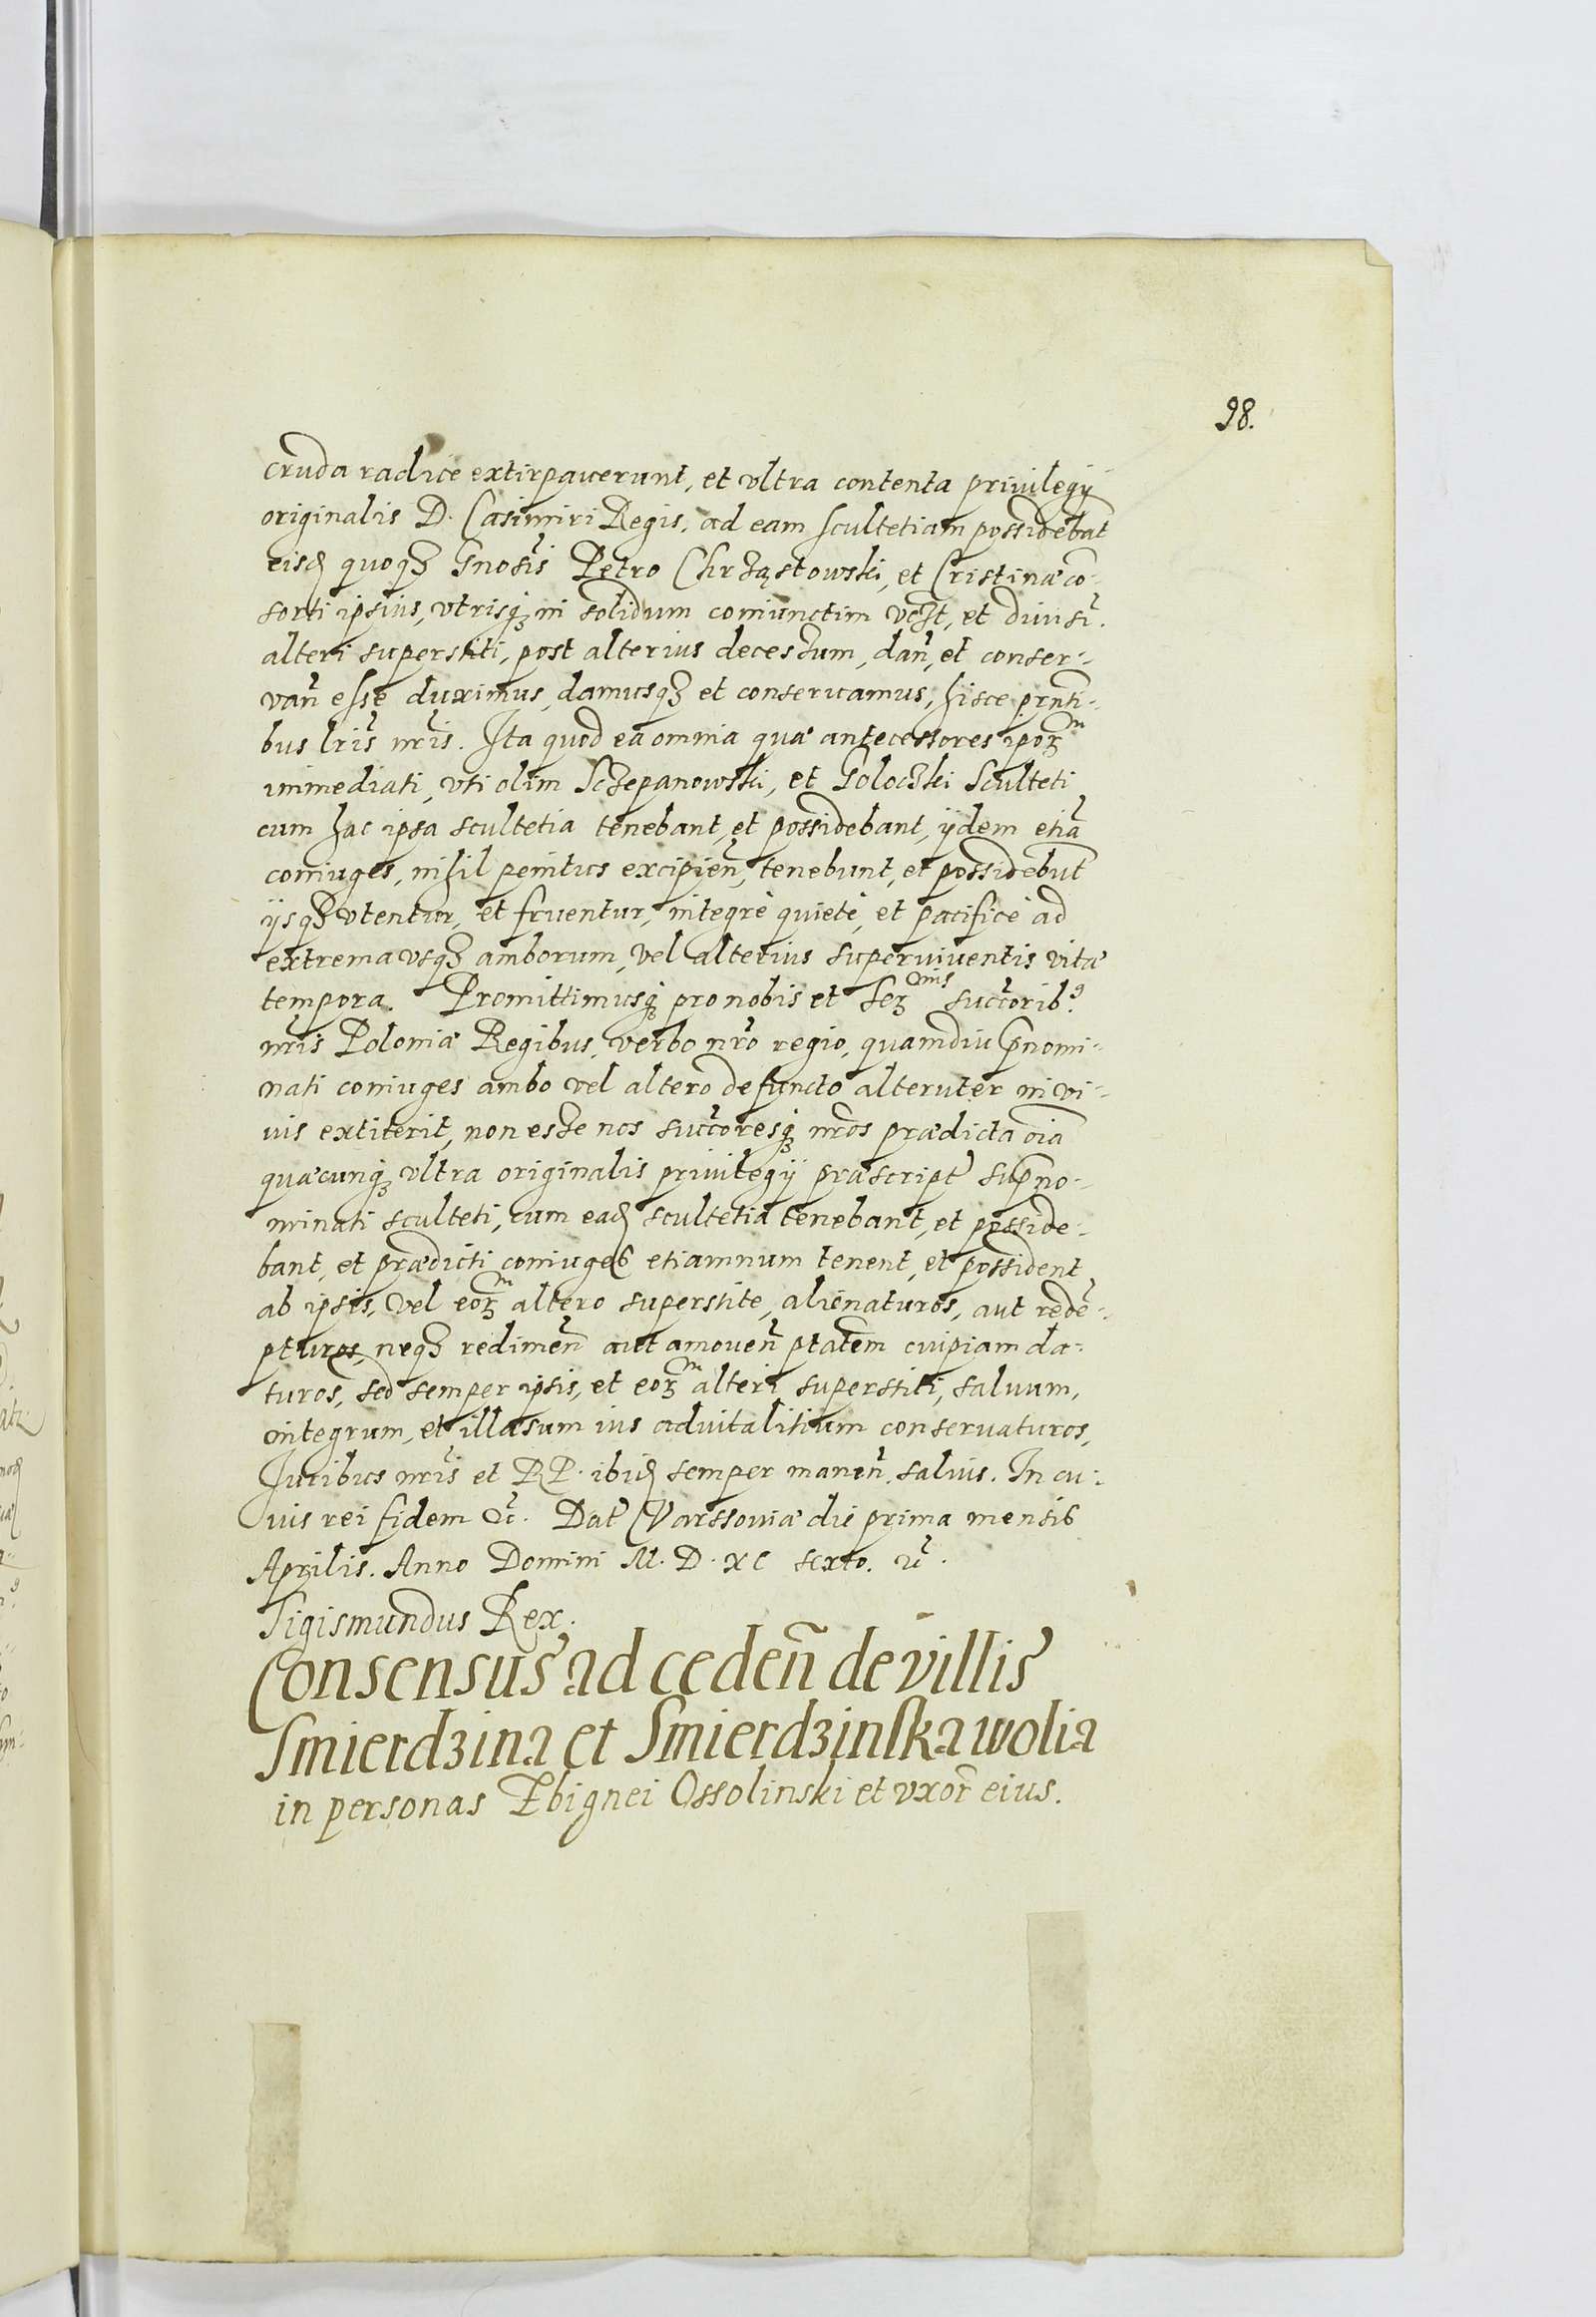 98.
cruda radice extirpauerunt, et vltra contenta priuilegÿ
originalis D. Casimiri Regis, ad eam scultetiam possidebāt
eisd quoqз Gnosis Petro Chrząstowski, et Cristinæ cō-
sorti ipsius, vtrisqз in solidum coniunctim vczt, et diuisi.
alteri superstiti, post alterius decessum, dan̄, et conser-
van̄ esse duximus, damusqз et conseruamus, hisce prnti-
bus lris nris. Ita quod ea omnia quæ antecessores ipoꝝm
immediati, vti olim Sczepanowski, et Goloczki Sculteti
cum hac ipsa scultetia tenebant, et possidebant, ÿdem etiā
coniuges, nihil penitus excipien̄, tenebunt, et possidebūt
ijsqз vtentur, et fruentur, integrè quietè, et pacificè ad
extrema vsqз amborum, vel alterius superviuentis vitæ
tempora. Promittimusqз pro nobis et Serᵐⁱˢ succorib9.
nris Poloniæ Regibus, verbo nro regio, quamdiu p̄nomi-
nati coniuges ambo vel altero defuncto alteruter in vi-
uis extiterit, non esse nos succoresqз nros prædicta oīa
quæcunqз vltra originalis priuilegÿ præscript sup̄no-
minati sculteti, cum ead scultetia tenebant, et posside-
bant, et prædicti coniuges etiamnum tenent, et possident
ab ipsis, vel eoꝝm altero superstite, alienaturos, aut redē-
pturos, neqз redimen̄ aut amouen̄ ptatem cuipiam da-
turos, sed semper ipsis, et eoꝝm alteri superstiti, saluum,
integrum, et illæsum ius aduitalitium conseruaturos,
Iuribus nris et RP. ibid semper manen̄. saluis. In cu-
ius rei fidem &c. Dat Varssouiæ die prima mensis
Aprilis. Anno Domini M. D. XC sexto. &c.
Sigismundus Rex.
Consensus ad ceden̄ de villis
Smierdzina et Smierdzinska wolia
in personas Zbignei Ossolinski et vxor̄ eius.